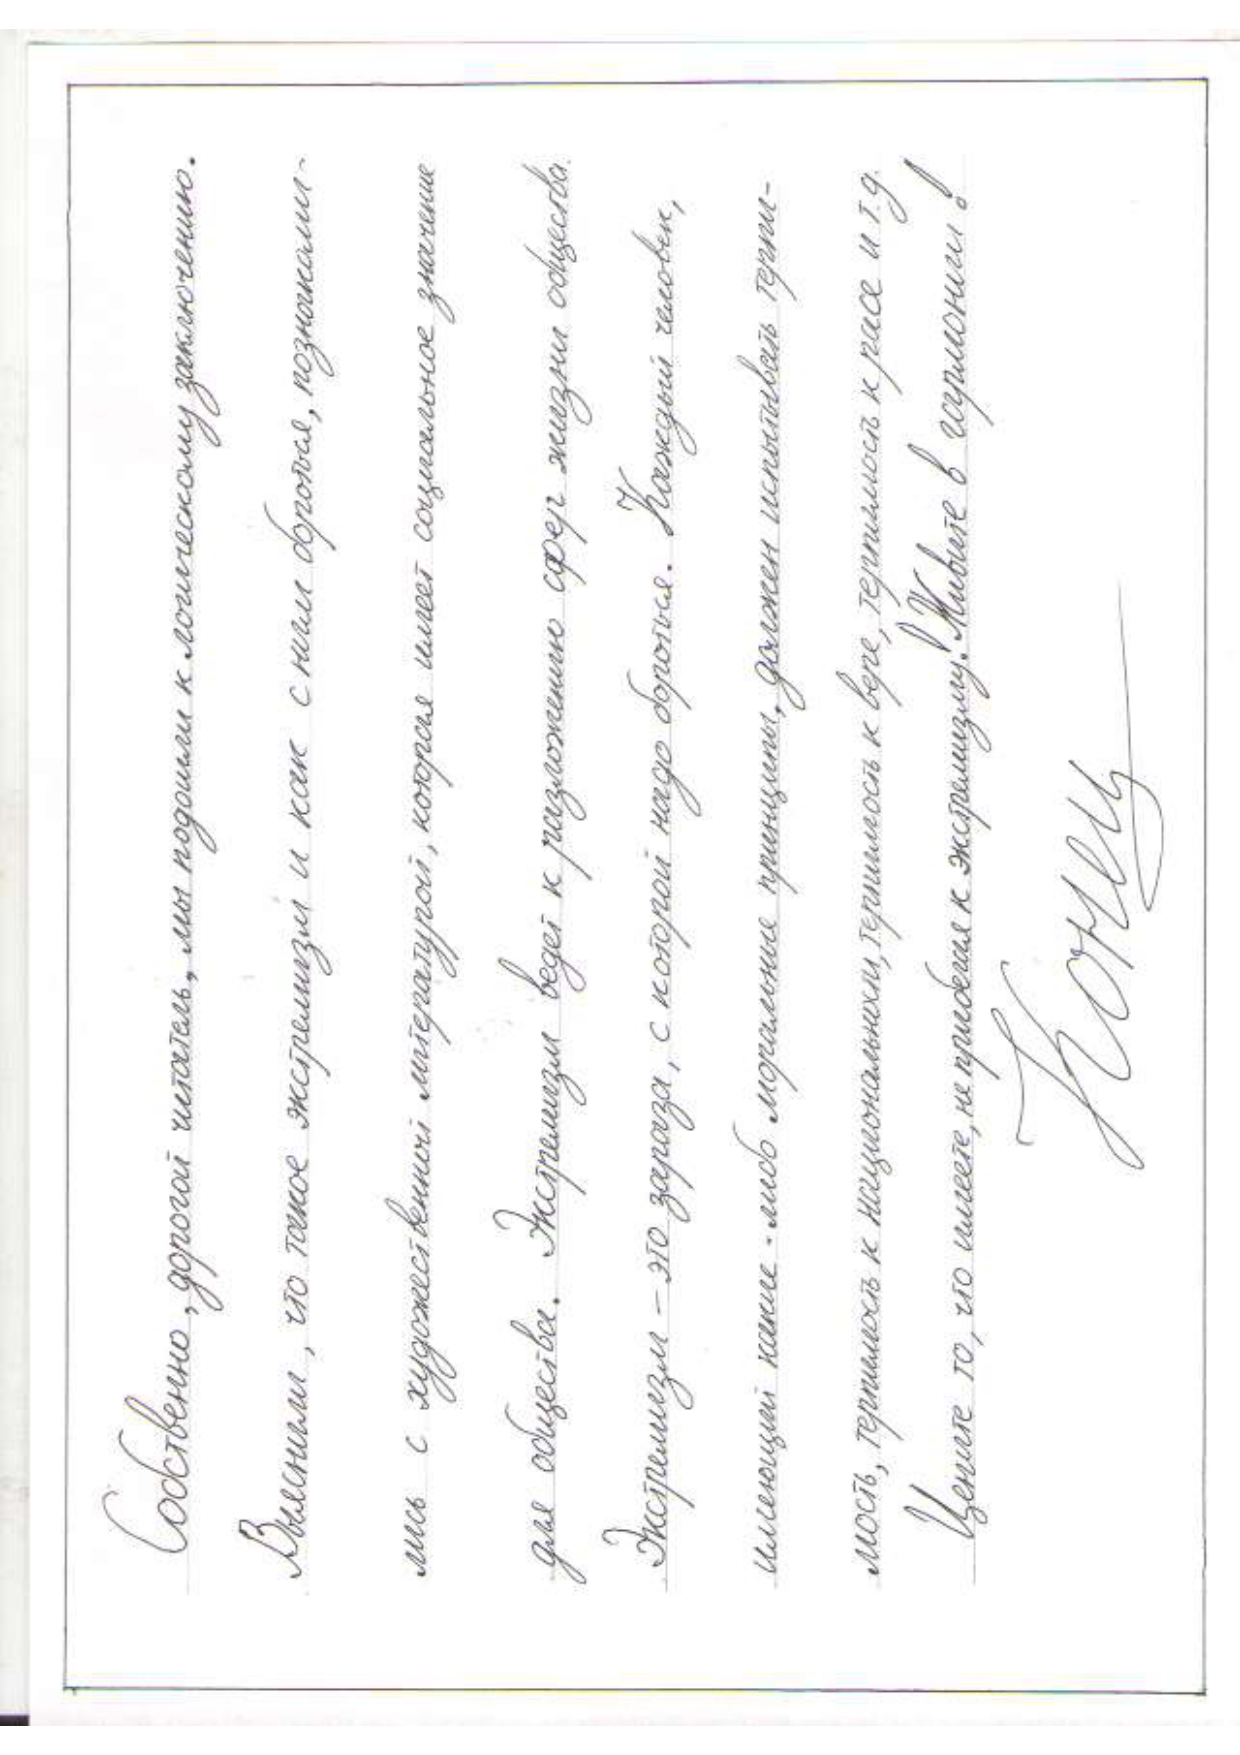 Собственно, дорогой читатель, мы подошли к логическому заключению.
Выяснили, что такое экстремизм и как с ним бороться, познакоми-
лись с художественной литературой, которая имеет социальное значение
для общества. Экстремизм ведет к разложению сфер жизни общества.
Экстремизм – это зараза, с которой надо бороться. Каждый человек,
имеющий какие-либо моральные принципы, должен испытывать терпи-
мость, терпимость к национальности, терпимость к вере, терпимость к расе и т.д.
Цените то, что имеете, не прибегая к экстремизму! Живите в гармонии!
Конец